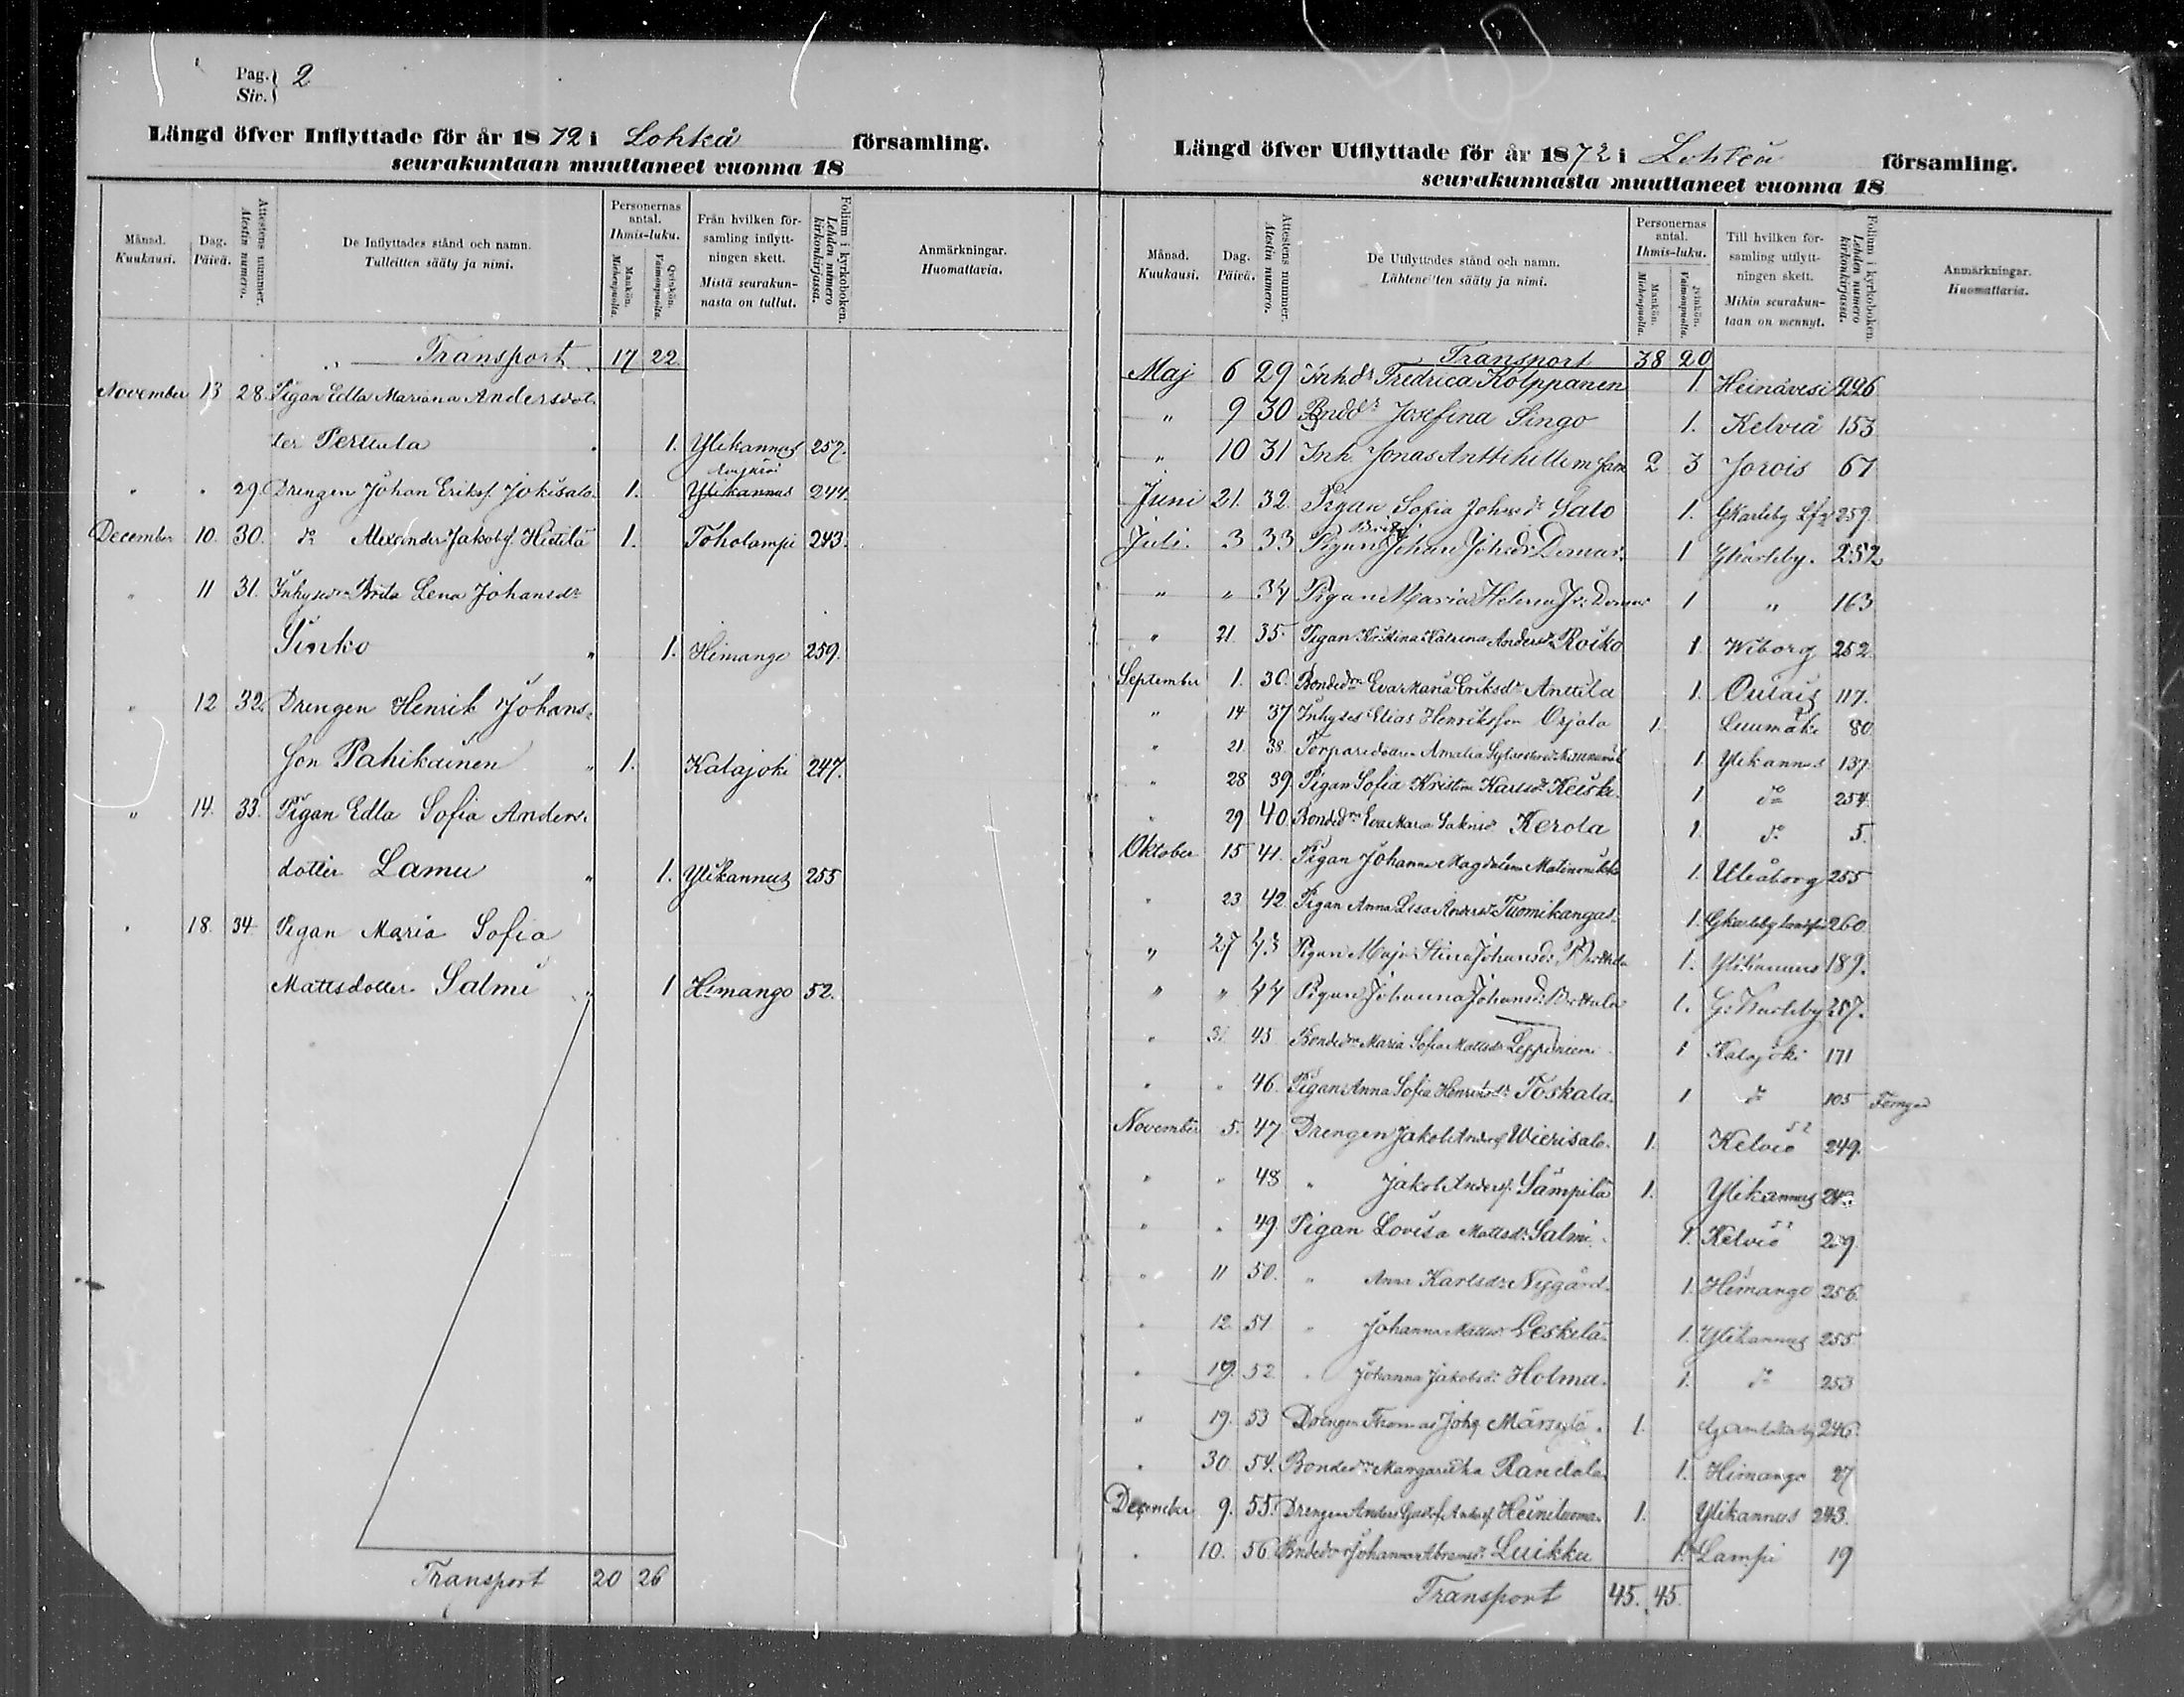 Pag. Siv. 2
Längd öfver Inflyttade för år 1872 i Lohteå församling.
seurakuntaan muuttaneet vuonna 18
Månad. Kuukausi.
Dag. Päivä.
Attestens nummer. Atestin numero.
De Inflyttades stånd och namn. Tulleitten sääty ja nimi.
Personernas antal. Ihmis-luku.
Mankön. Miehenpuolta.
Qvinkön. Vaimonpuolta.
Från hvilken församling inflyttningen skett. Mistä seurakunnasta on tullut.
Folium i kyrkoboken. Lehden numero kirkonkirjassa.
Anmärkningar. Huomattavia.
Transport 17 22
November 13 28. Pigan Edla Mariana Andersdot-
ter Perttula 1. Ylikannus 257.
" " 29. Drengen Johan Eriksf. Jokisalo 1. Ylikannus 244.
December 10. 30. do Alexander Jakobsf. Hietila 1. Toholampi 243.
" 11 31. Inhysedr Brita Lena Johansdr
Sinko " 1. Himango 259.
" 12 32. Drengen Henrik Johans-
son Pahikainen " 1. Kalajoki 247.
" 14. 33. Pigan Edla Sofia Anders-
dotter Lamu " 1. Ylikannus 255
" 18. 34. Pigan Maria Sofia
Mattsdotter Salmi " 1 Himango 52.
Transport 20 26
Längd öfver Utflyttade för år 1872 i Lohteå församling.
seurakunnasta muuttaneet vuonna 18
Månad. Kuukausi.
Dag. Päivä.
Attestens nummer. Atestin numero.
De Utflyttades stånd och namn. Lähteneitten sääty ja nimi.
Personernas antal. Ihmis-luku.
Mankön. Miehenpuolta.
Qvinkön. Vaimonpuolta.
Till hvilken församling utflyttningen skett. Mihin seurakuntaan on mennyt.
Folium i kyrkoboken. Lehden numero kirkonkirjassa.
Anmärkningar. Huomattavia.
Transport 38 20
Maj 6 29 Inh.dr Fredrica Kolppanen 1. Heinävesi 226
" 9 30 Bnddr Josefina Singo 1. Kelviå 153
" 10 31 Inh. Jonas Anttihillem fam 2 3 Jorois 67
Juni 21. 32. Pigan Sofia Johnsdr Salo 1. GKarleby Lfg 259.
Juli. 3 33 Pigan Brita Johan Johsdr 1 GKarleby. 252
" " 34 Pigan Maria Helena 1 " 163
" 21. 35. Pigan Kristina Katrina Andersdr Roiko 1 Wiborg 252
September 1. 36. Bondedr Eva Maria Eriksdr Anttila 1. Oulais 117.
" 14 37 Inhyses Elias Henriksson Orjala 1. Luumäki 80
" 21 38. Torparedottern Amalia 1 Ylikannus 137.
" 28 39. Pigan Sofia Kristina Karlsdr Keiski 1 do 254.
" 29 40. Bondedr Eva Maria Kerola 1. do 5.
Oktober 15 41. Pigan Johanna Magdalena 1. Uleåborg 255
" 23 42. Pigan Anna Lisa Andersdr Tuomikangas 1. Gkarleby landsförs 260
" 27 43 Pigan Maja Stina Johansdr 1. Ylikannus 189.
" " 44 Pigan Johanna Johansdr 1. G: Karleby 257.
" 31 45 Bondedr Maria Sofia Mattsdr Leppiniemi 1 Kalajoki 171
" " 46. Pigan Anna Sofia Henriksdr Toskala 1 do 105
November 5. 47 Drengen Jakob Andersf. Wierisalo. 1. Kelviå 249.
" " 48 " Jakob Andersf. Sämpilä 1. Ylikannus
" " 49 Pigan Lovisa Mattsdr Salmi. 1. Kelviå 259
" 11 50. " Anna Karlsdr Nygård. 1. Himango 256.
" 12. 51 " Johanna Mattsdr Leskelä 1. Ylikannus 255
" 19. 52 " Johanna Jakobsdr Holma. 1. do 253
" 19. 53 Drengen Thomas Johsf. 1. Gamlakarleby 246.
" 30 54. Bondedr Margaretha Randala 1. Himango 27
December 9. 55. Drengen Anders Gustaf Andersf. Heiniluoma. 1. Ylikannus 243.
" 10. 56. Bndedr Johanna Abramsdr Luikku 1. Lampi 19
Transport 45. 45.